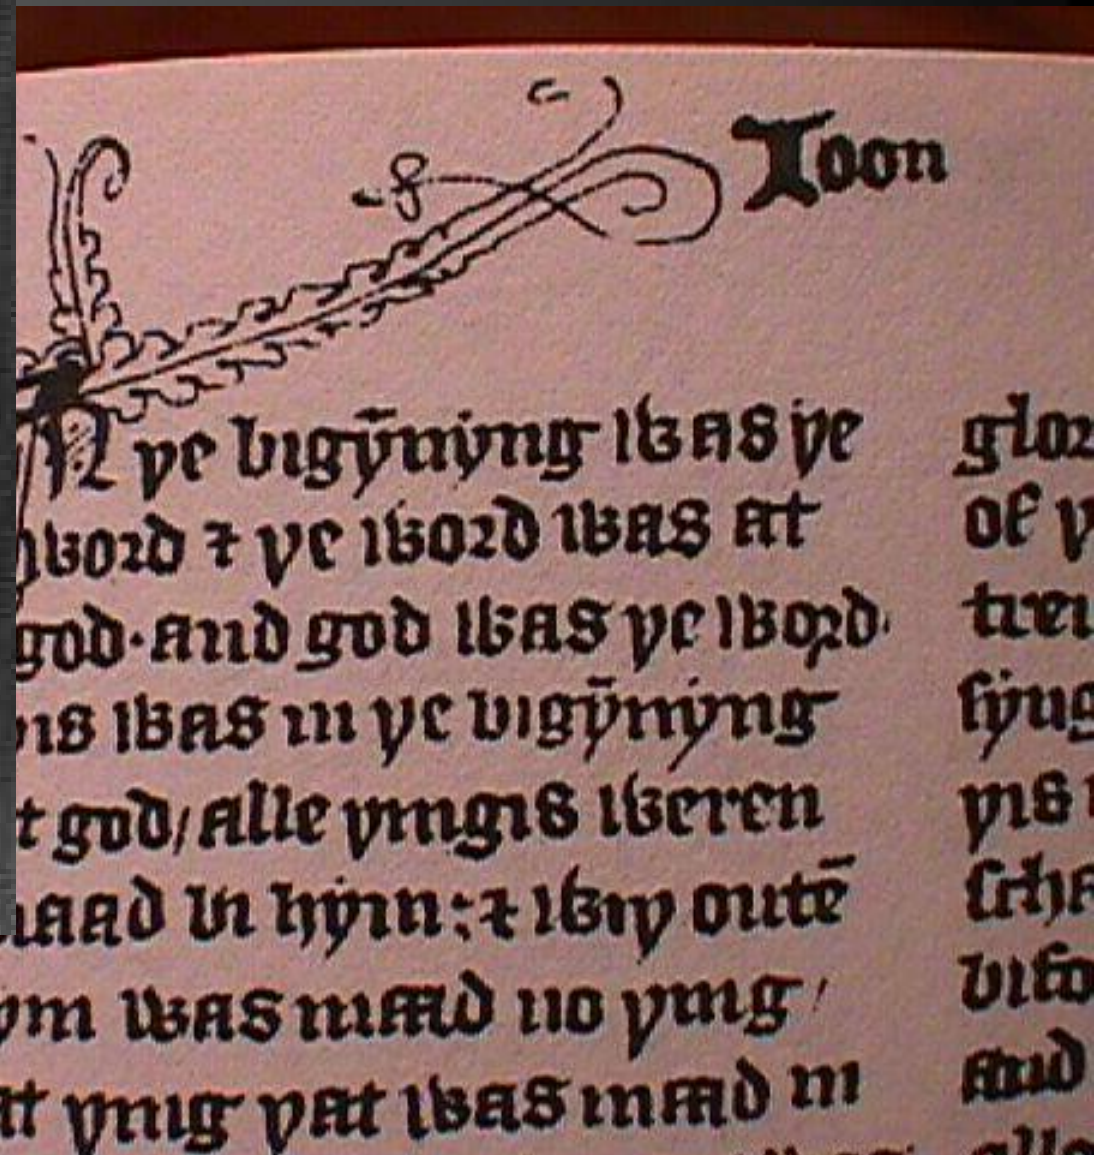 Ioon
N þe bigȳnyng was þe
word ⁊ þe word was at
god·and god was þe word·
is was in þe bigȳnyng
t god/ alle þingis weren
aad bi hym:⁊ wiþ outē
ym was maad no þing/
at þing þat was maad in
glor
of þ
treu
þis
bifo
and
alle